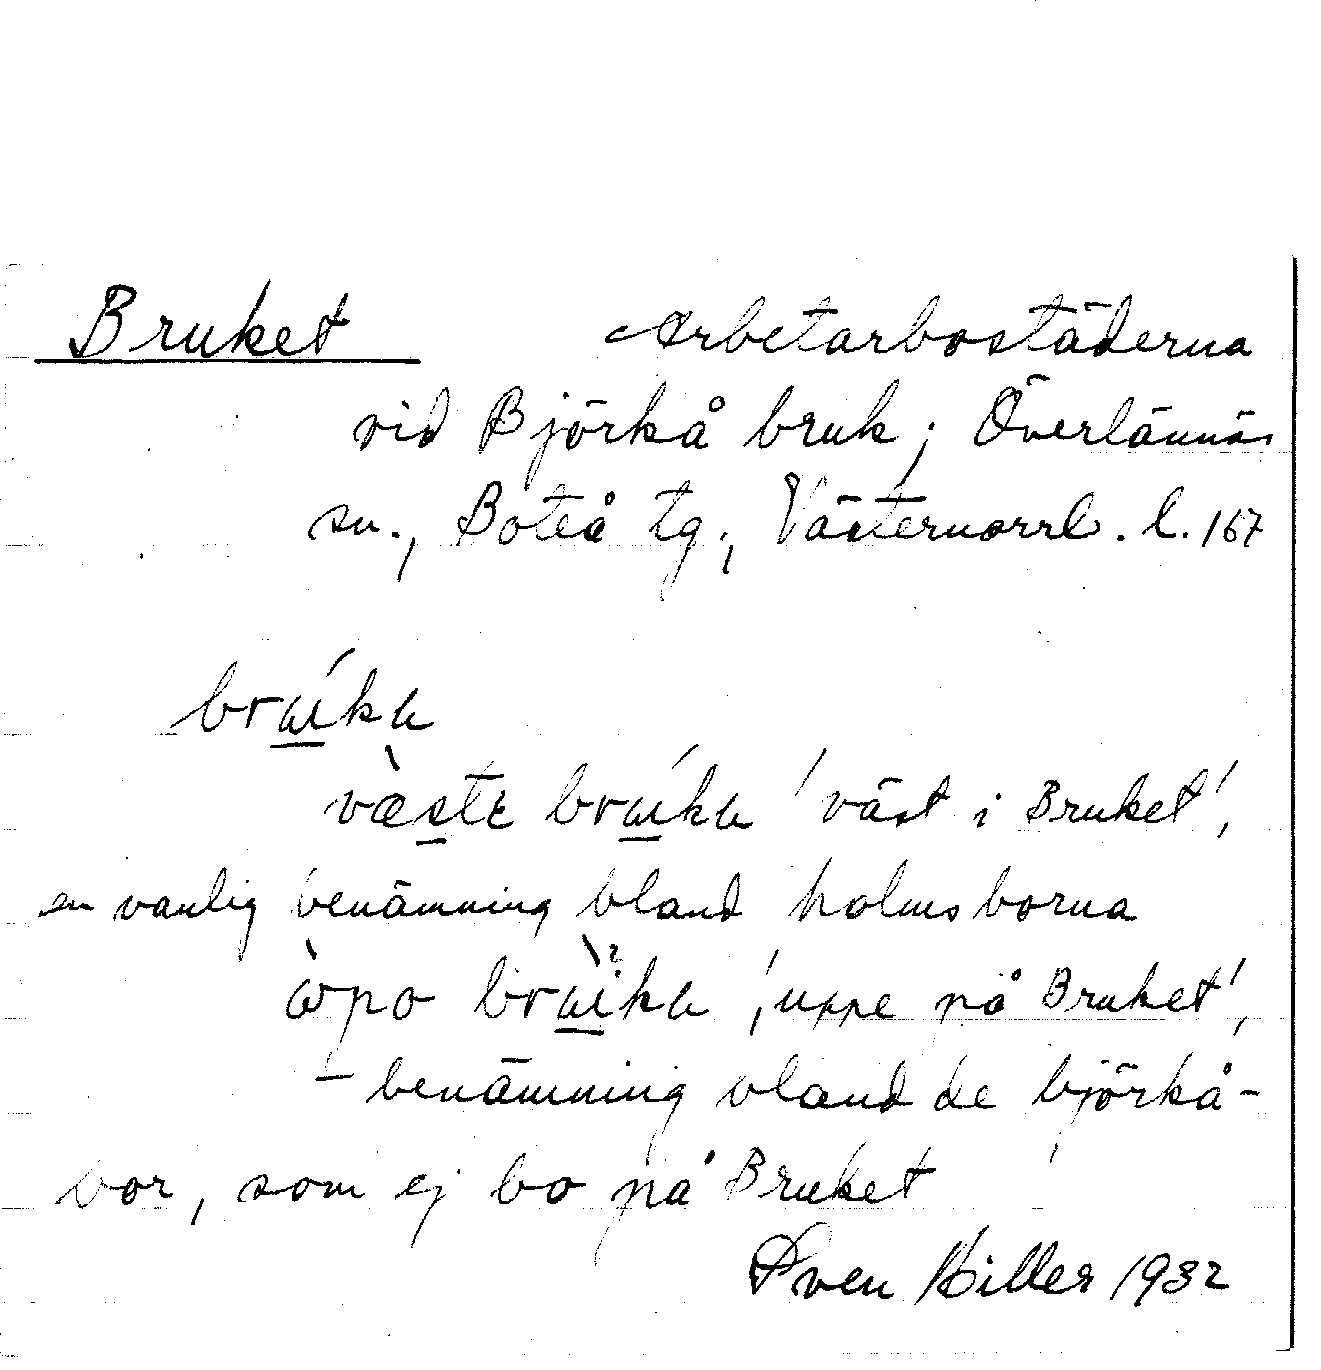 Bruket Arbetarbostäderna
vid Björkå bruk; Överlännäs
sn., Boteå tg., Västernorrl. l. 167
væste 'väst i Bruket',
en vanlig benämning bland holmsborna
'uppe på Bruket',
– benämning bland de björkå-
bor, som ej bo på Bruket
Sven Hiller 1932